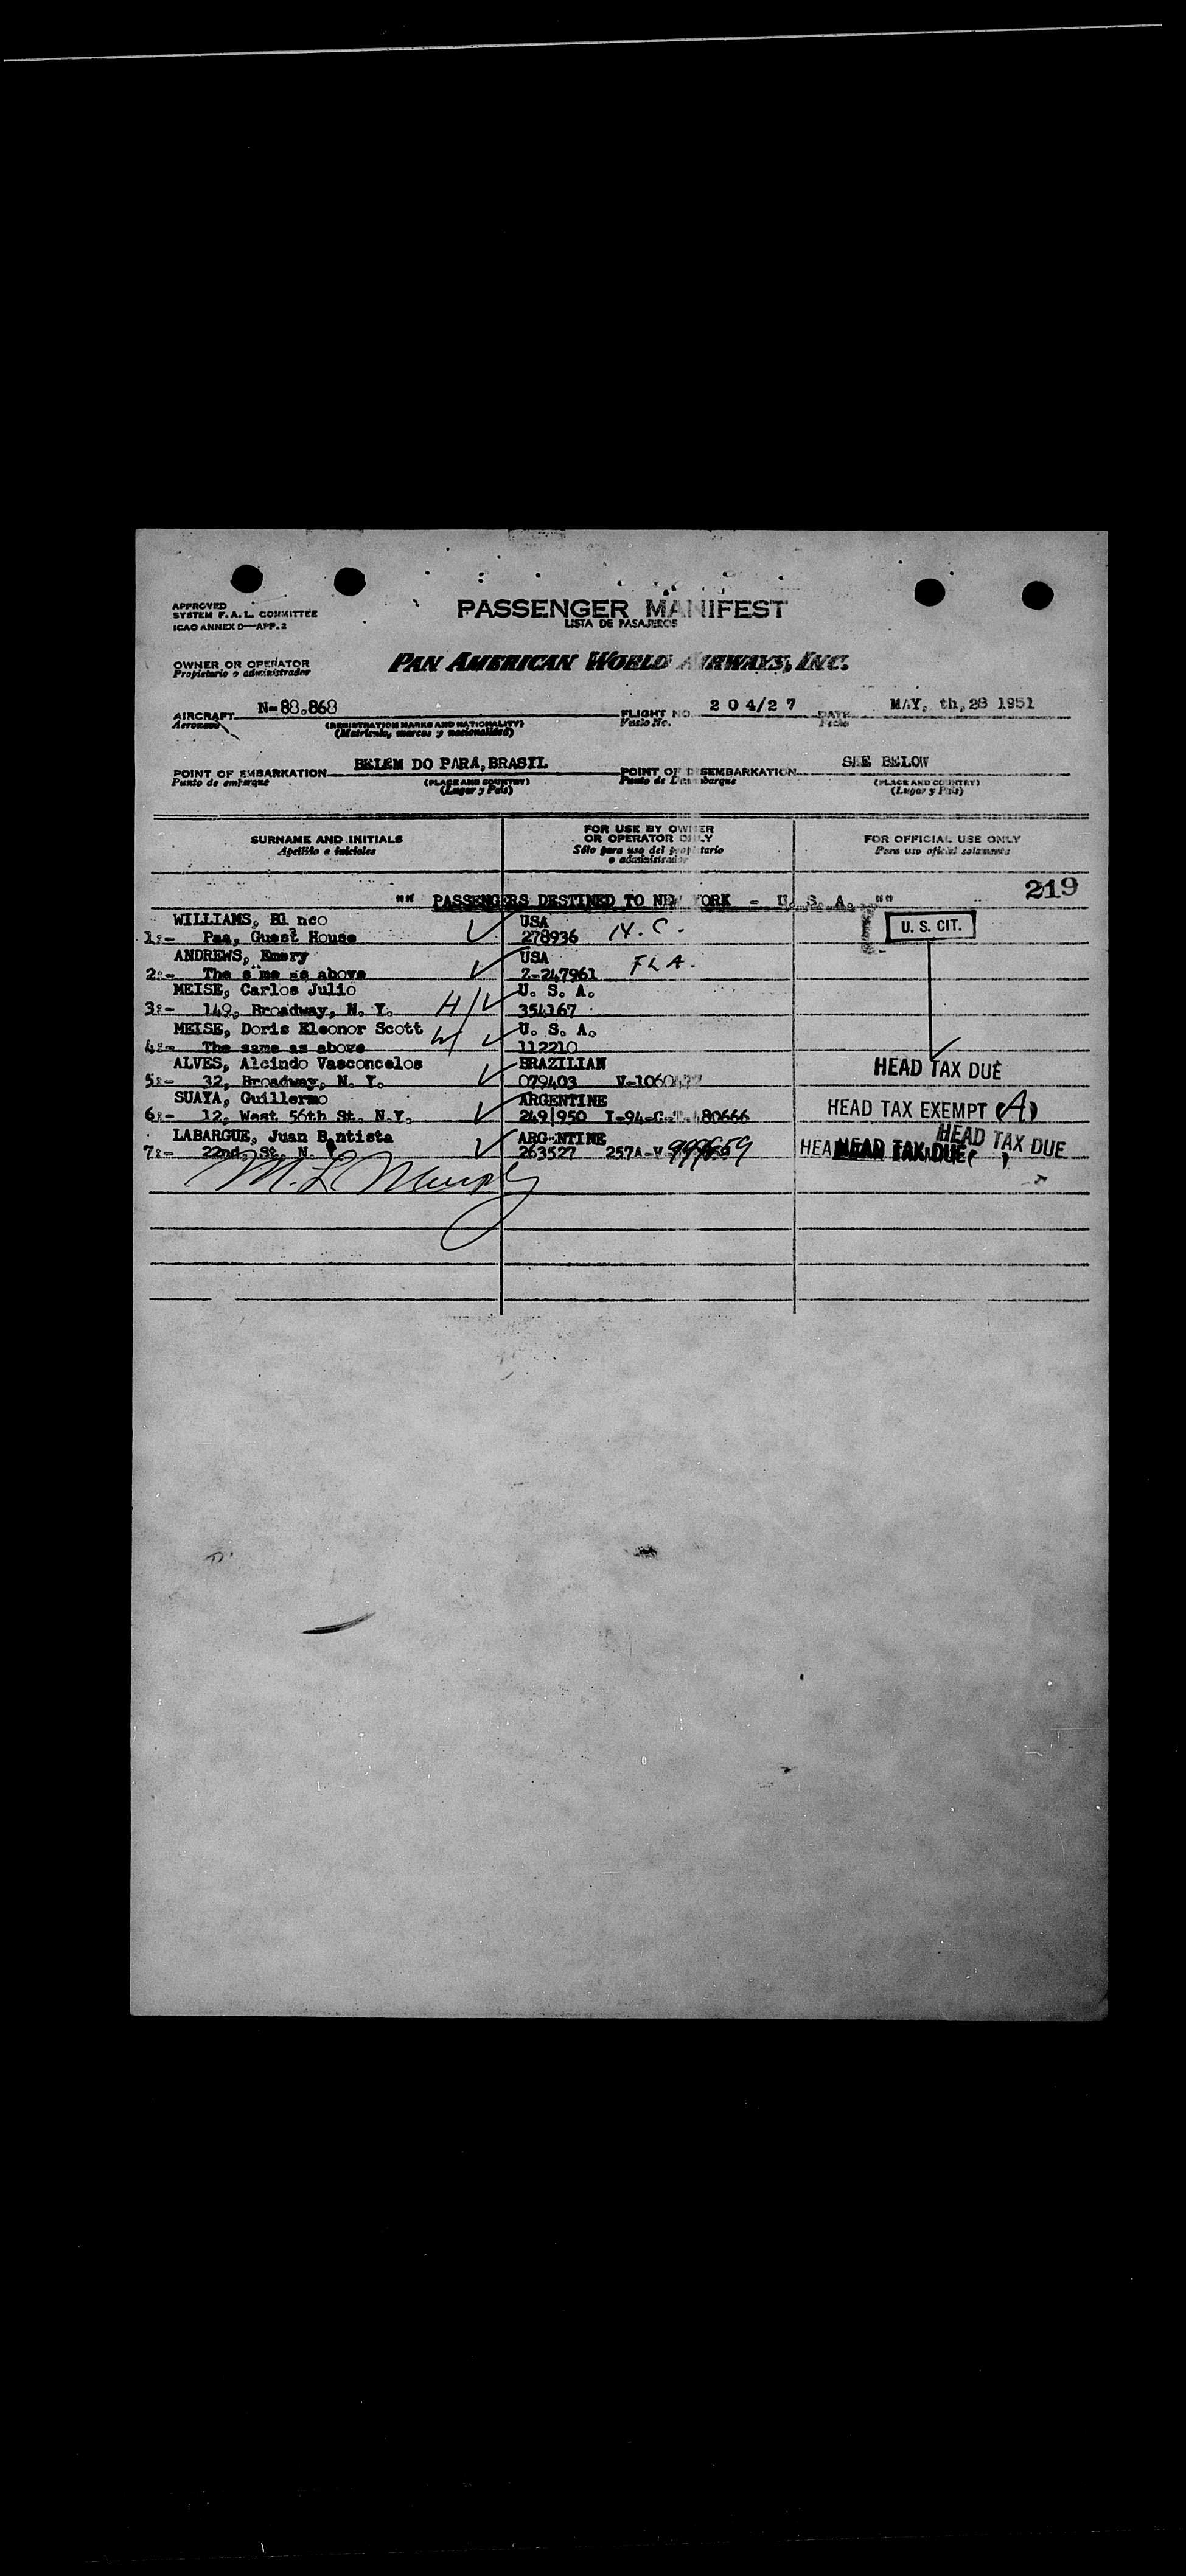 APPROVED
SYSTEM F.A.L. COMMITTEE
ICAO ANNEX 9—APP. 2
PASSENGER MANIFEST
LISTA DE PASAJEROS
OWNER OR OPERATOR
Propietario o administrador
PAN AMERICAN WORLD AIRWAYS, INC.
AIRCRAFT N-88.868 FLIGHT NO. 2 0 4/2 7 DATE MAY, th,28 1951
Aeronave (REGISTRATION MARKS AND NATIONALITY) Vuelo No. Fecha
(Matrícula, marcas y nacionalidad)
POINT OF EMBARKATION BELEM DO PARA, BRASIL POINT OF DISEMBARKATION SEE BELOW
Punto de embarque (PLACE AND COUNTRY) Punto de Desembarque (PLACE AND COUNTRY)
(Lugar y País) (Lugar y País)
SURNAME AND INITIALS
Apellido e iniciales
FOR USE BY OWNER
OR OPERATOR ONLY
Sólo para uso del propietario
o administrador
FOR OFFICIAL USE ONLY
Para uso oficial solamente
219
"" PASSENGERS DESTINED TO NEW YORK - U. S. A. ""
WILLIAMS, Bl nco USA U. S. CIT.
1:- Paa, Guest House 278936 N.C.
ANDREWS, Emery USA
2:- The s me as above Z-247961 FLA.
MEISE, Carlos Julio U. S. A.
3:- 149, Broadway, N. Y. H 354167
MEISE, Doris Eleonor Scott U. S. A.
4:- The same as above W 112210
ALVES, Alcindo Vasconcelos BRAZILIAN HEAD TAX DUE
5:- 32, Broadway, N. Y. 079403
SUAYA, Guillermo ARGENTINE HEAD TAX EXEMPT (A)
6:- 12, West 56th St. N.Y. 249/950
LABARGUE, Juan Batista ARGENTINE HEAD TAX DUE
7:- 22nd, St, N. Y. 263527 257A-V HEAD TAX DUE
M. L. Murphy